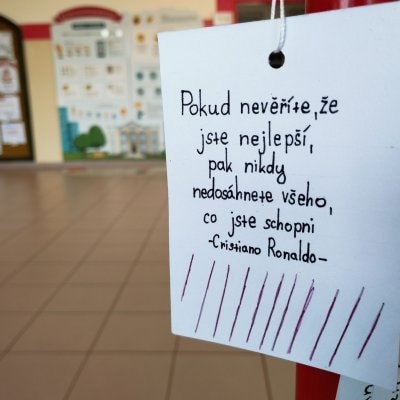 Pokud nevěříte, že
jste nejlepší,
pak nikdy
nedosáhnete všeho,
co jste schopni
-Cristiano Ronaldo-